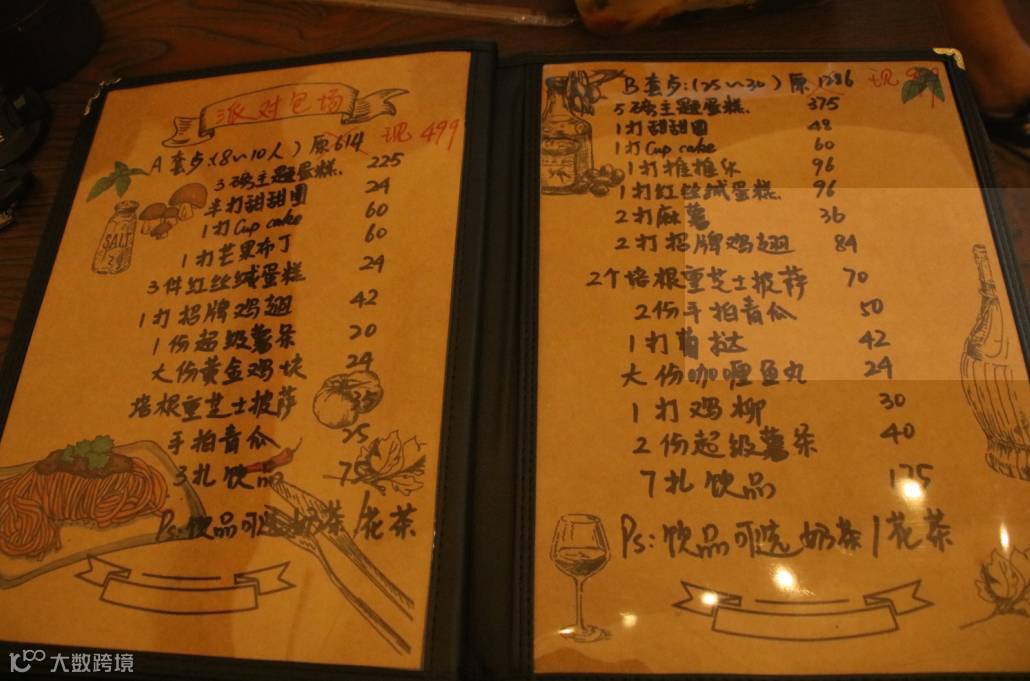 派对包场
A套点:(8~10人) 原614 现499
3磅主题蛋糕. 225
半打甜甜圈 24
1打Cup cake 60
1打芒果布丁 60
3件红丝绒蛋糕 24
1打招牌鸡翅 42
1份超级薯条 20
大份黄金鸡块 24
培根重芝士披萨 35
手拍青瓜 25
3扎饮品 75
Ps:饮品可选奶茶/花茶
SALT
B套点:(25~30) 原1286 现
5磅主题蛋糕. 375
1打甜甜圈 48
1打Cup cake 60
1打推推乐 96
1打红丝绒蛋糕 96
2打麻薯 36
2打招牌鸡翅 84
2个培根重芝士披萨 70
2份手拍青瓜 50
1打葡挞 42
大份咖喱鱼丸 24
1打鸡柳 30
2份超级薯条 40
7扎饮品 175
Ps:饮品可选奶茶/花茶
大数跨境